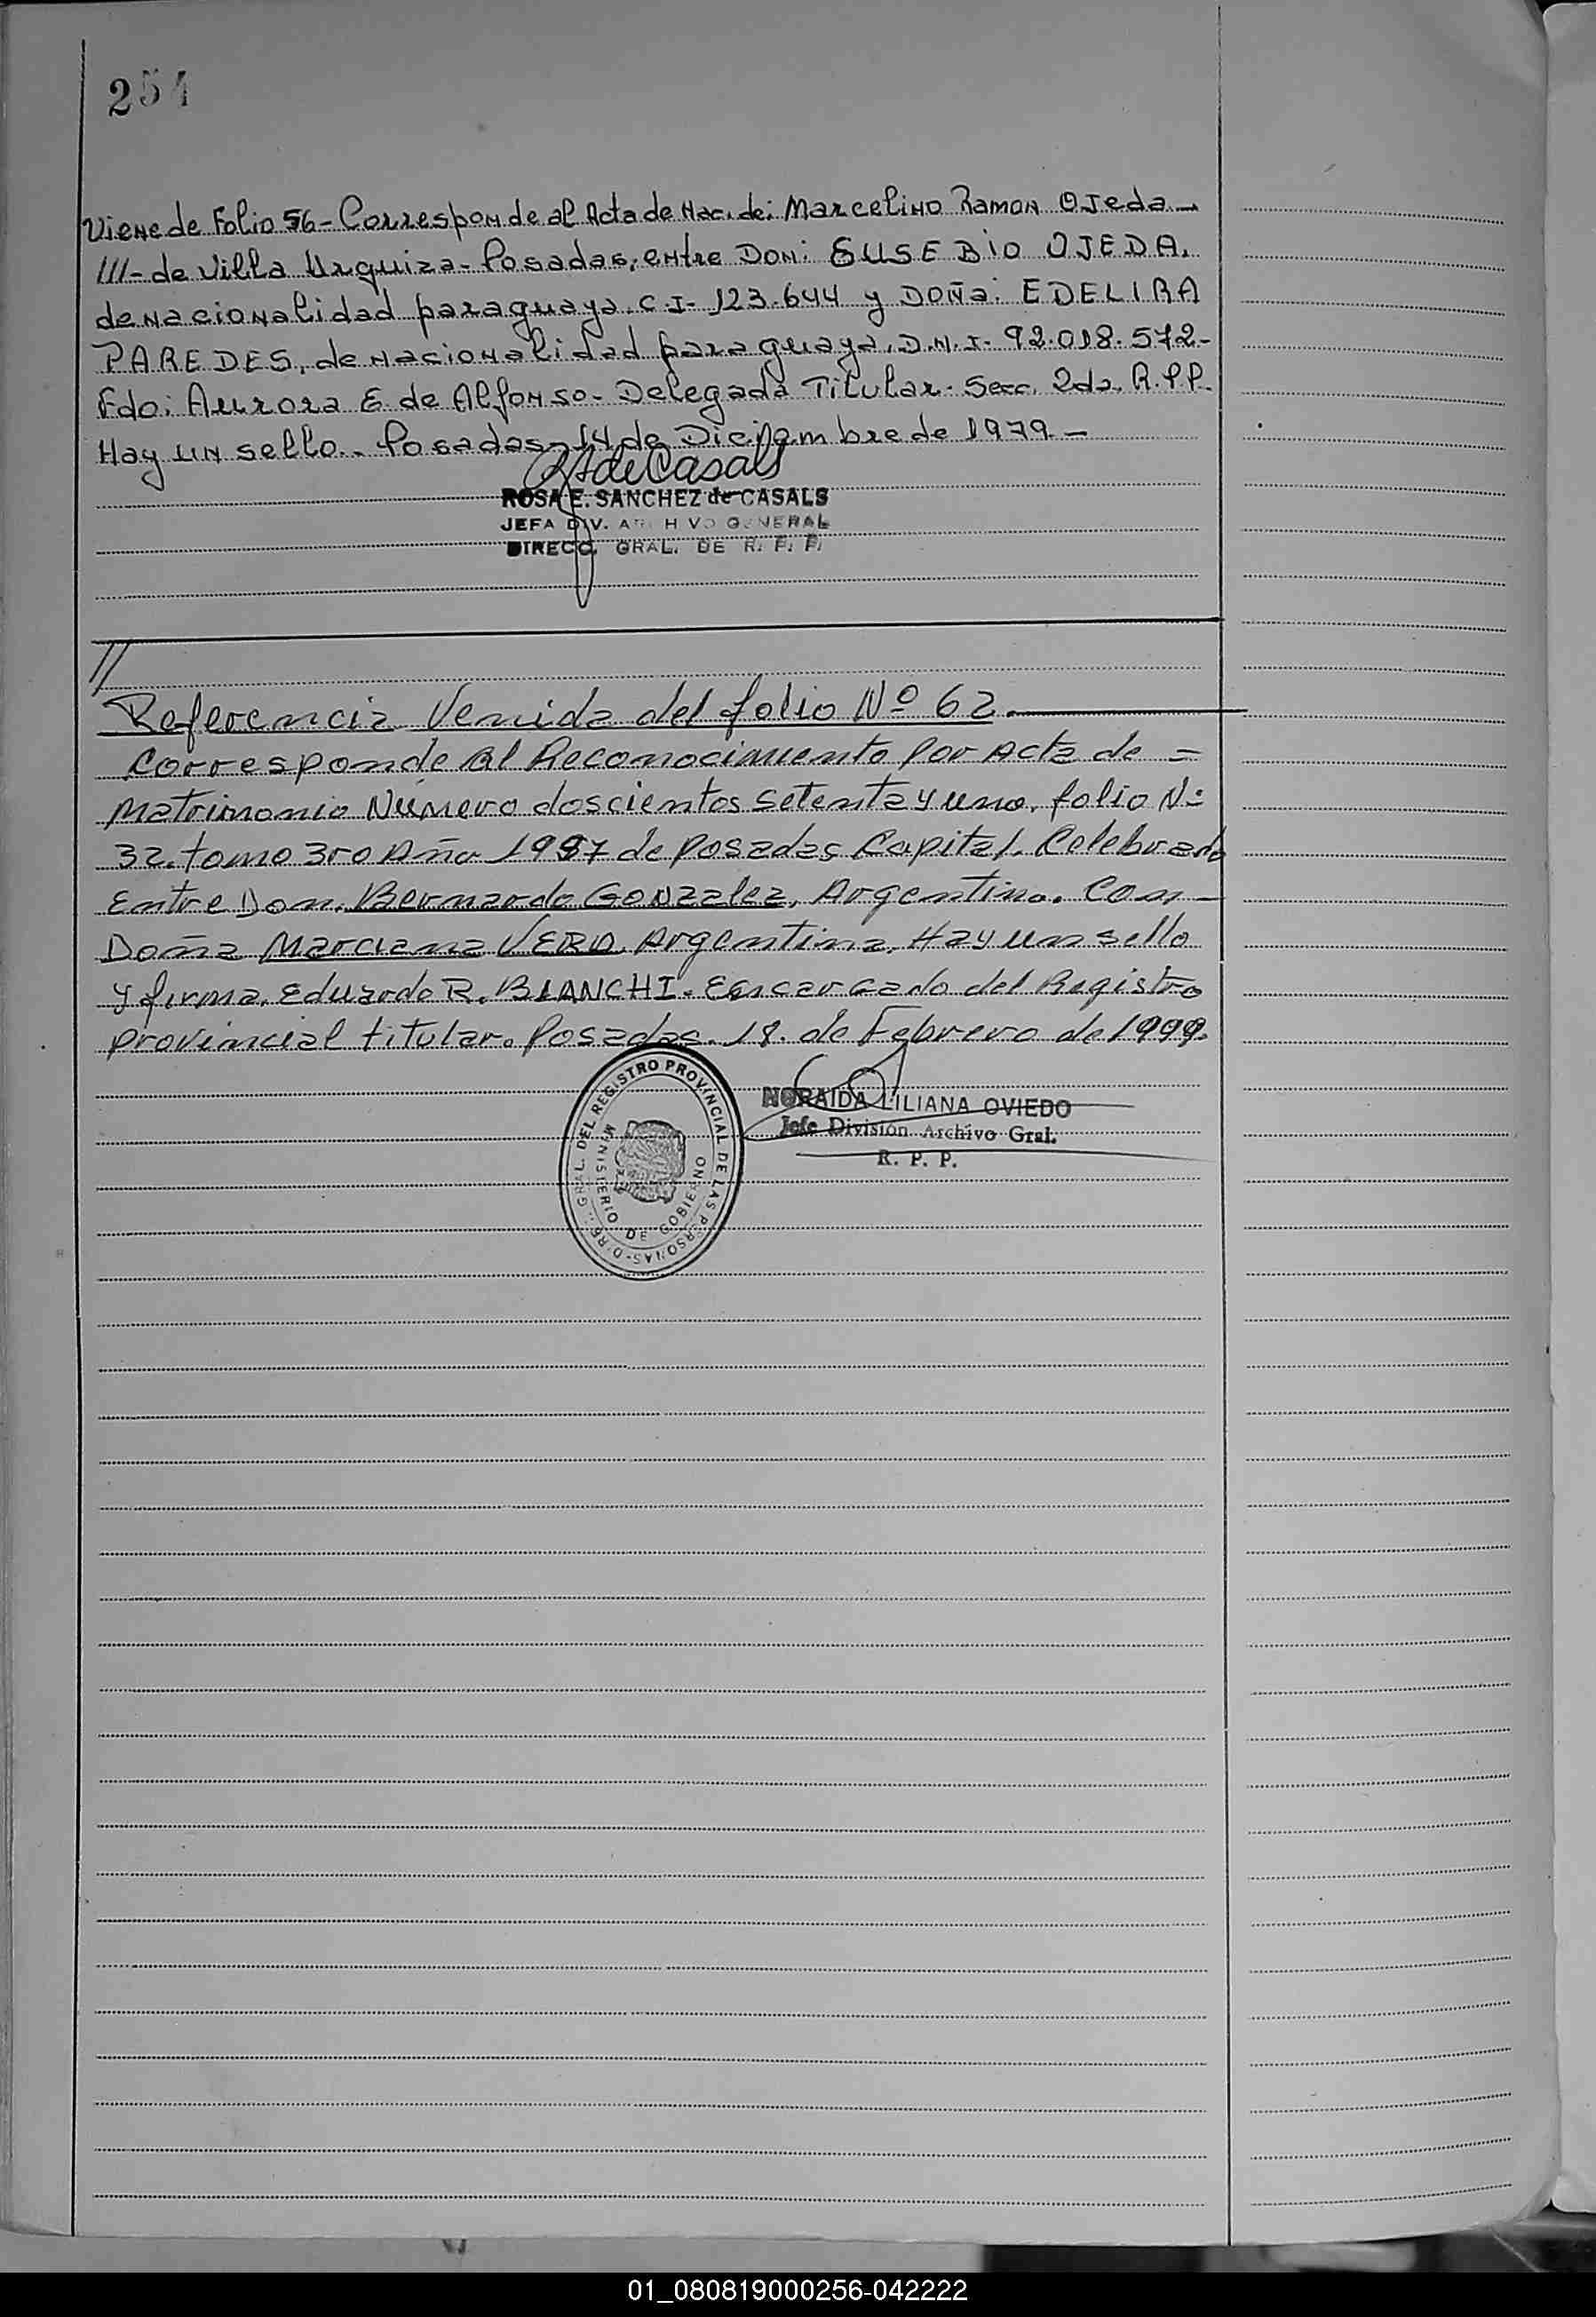 254
Viene de Folio 56 - Corresponde al Acta de Nac. de: Marcelino Ramon OJeda -
III - de Villa Urquiza - Posadas, entre Don: EUSEBIO OJEDA,
de nacionalidad paraguaya. C.I - 123.644 y DOÑa: EDELIRA
PAREDES, de nacionalidad paraguaya, D.N.I - 92.018.572 -
Fdo: Aurora E. de Alfonso - Delegada Titular - Secc. 2da. R.P.P.
Hay un sello. - Posadas, 14 de Diciembre de 1979 -
ROSA E. SANCHEZ de CASALS
JEFA DIV. ARCHIVO GENERAL
DIRECC. GRAL. DE R. P. P.
//
Referencia Venida del folio Nº 62.
Corresponde al Reconocimiento por Acta de =
Matrimonio Número doscientos setenta y uno, folio Nº
32. tomo 3ro Año 1987 de Posadas Capital. Celebrado
Entre Don. Bernardo GONZalez, Argentino. Con -
Doña Marciana VERA. Argentina. Hay un sello
y firma. Eduardo R. BIANCHI. Encargado del Registro
provincial titular. Posadas. 18. de Febrero de 1999.
NORAIDA LILIANA OVIEDO
Jefe División Archivo Gral.
R. P. P.
GRAL. DEL REGISTRO PROVINCIAL DE LAS PERSONAS
MINISTERIO DE GOBIERNO
01_080819000256-042222